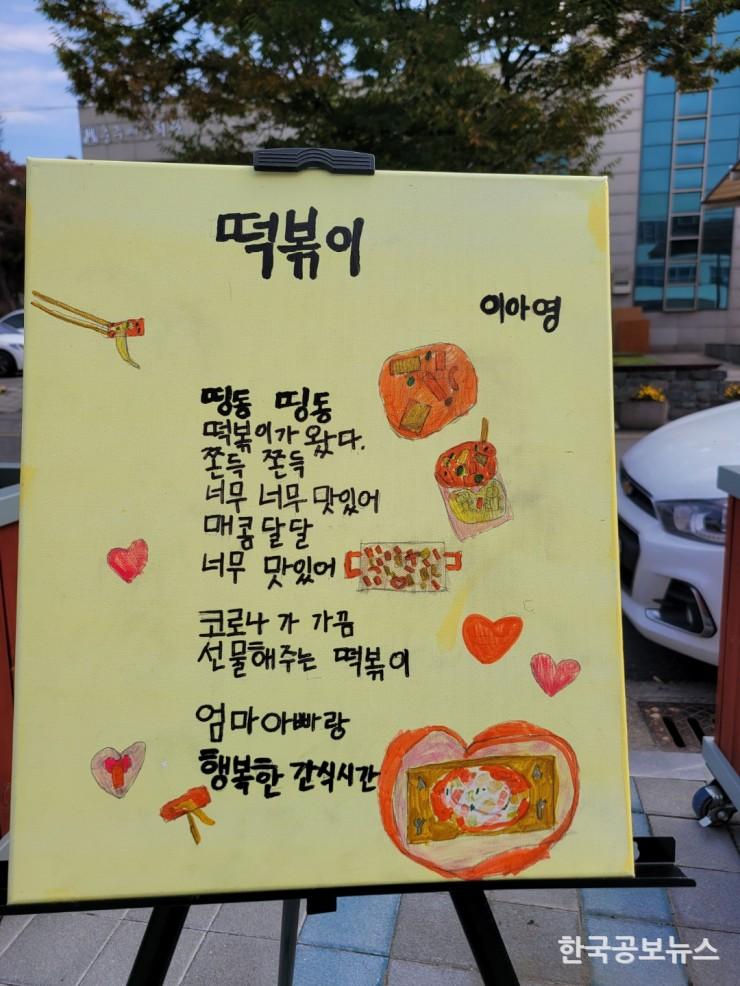 떡볶이
이아영
띵동 띵동
떡볶이가 왔다.
쫀득 쫀득
너무 너무 맛있어
매콤달달
너무 맛있어
코로나가 가끔
선물해주는 떡볶이
엄마아빠랑
행복한 간식시간
한국공보뉴스